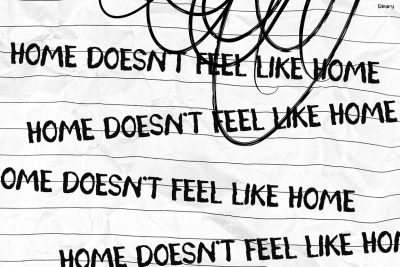 Binary
HOME DOESN'T FEEL LIKE HOME
HOME DOESN'T FEEL LIKE HOME
OME DOESN'T FEEL LIKE HOME
HOME DOESN'T FEEL LIKE HOM